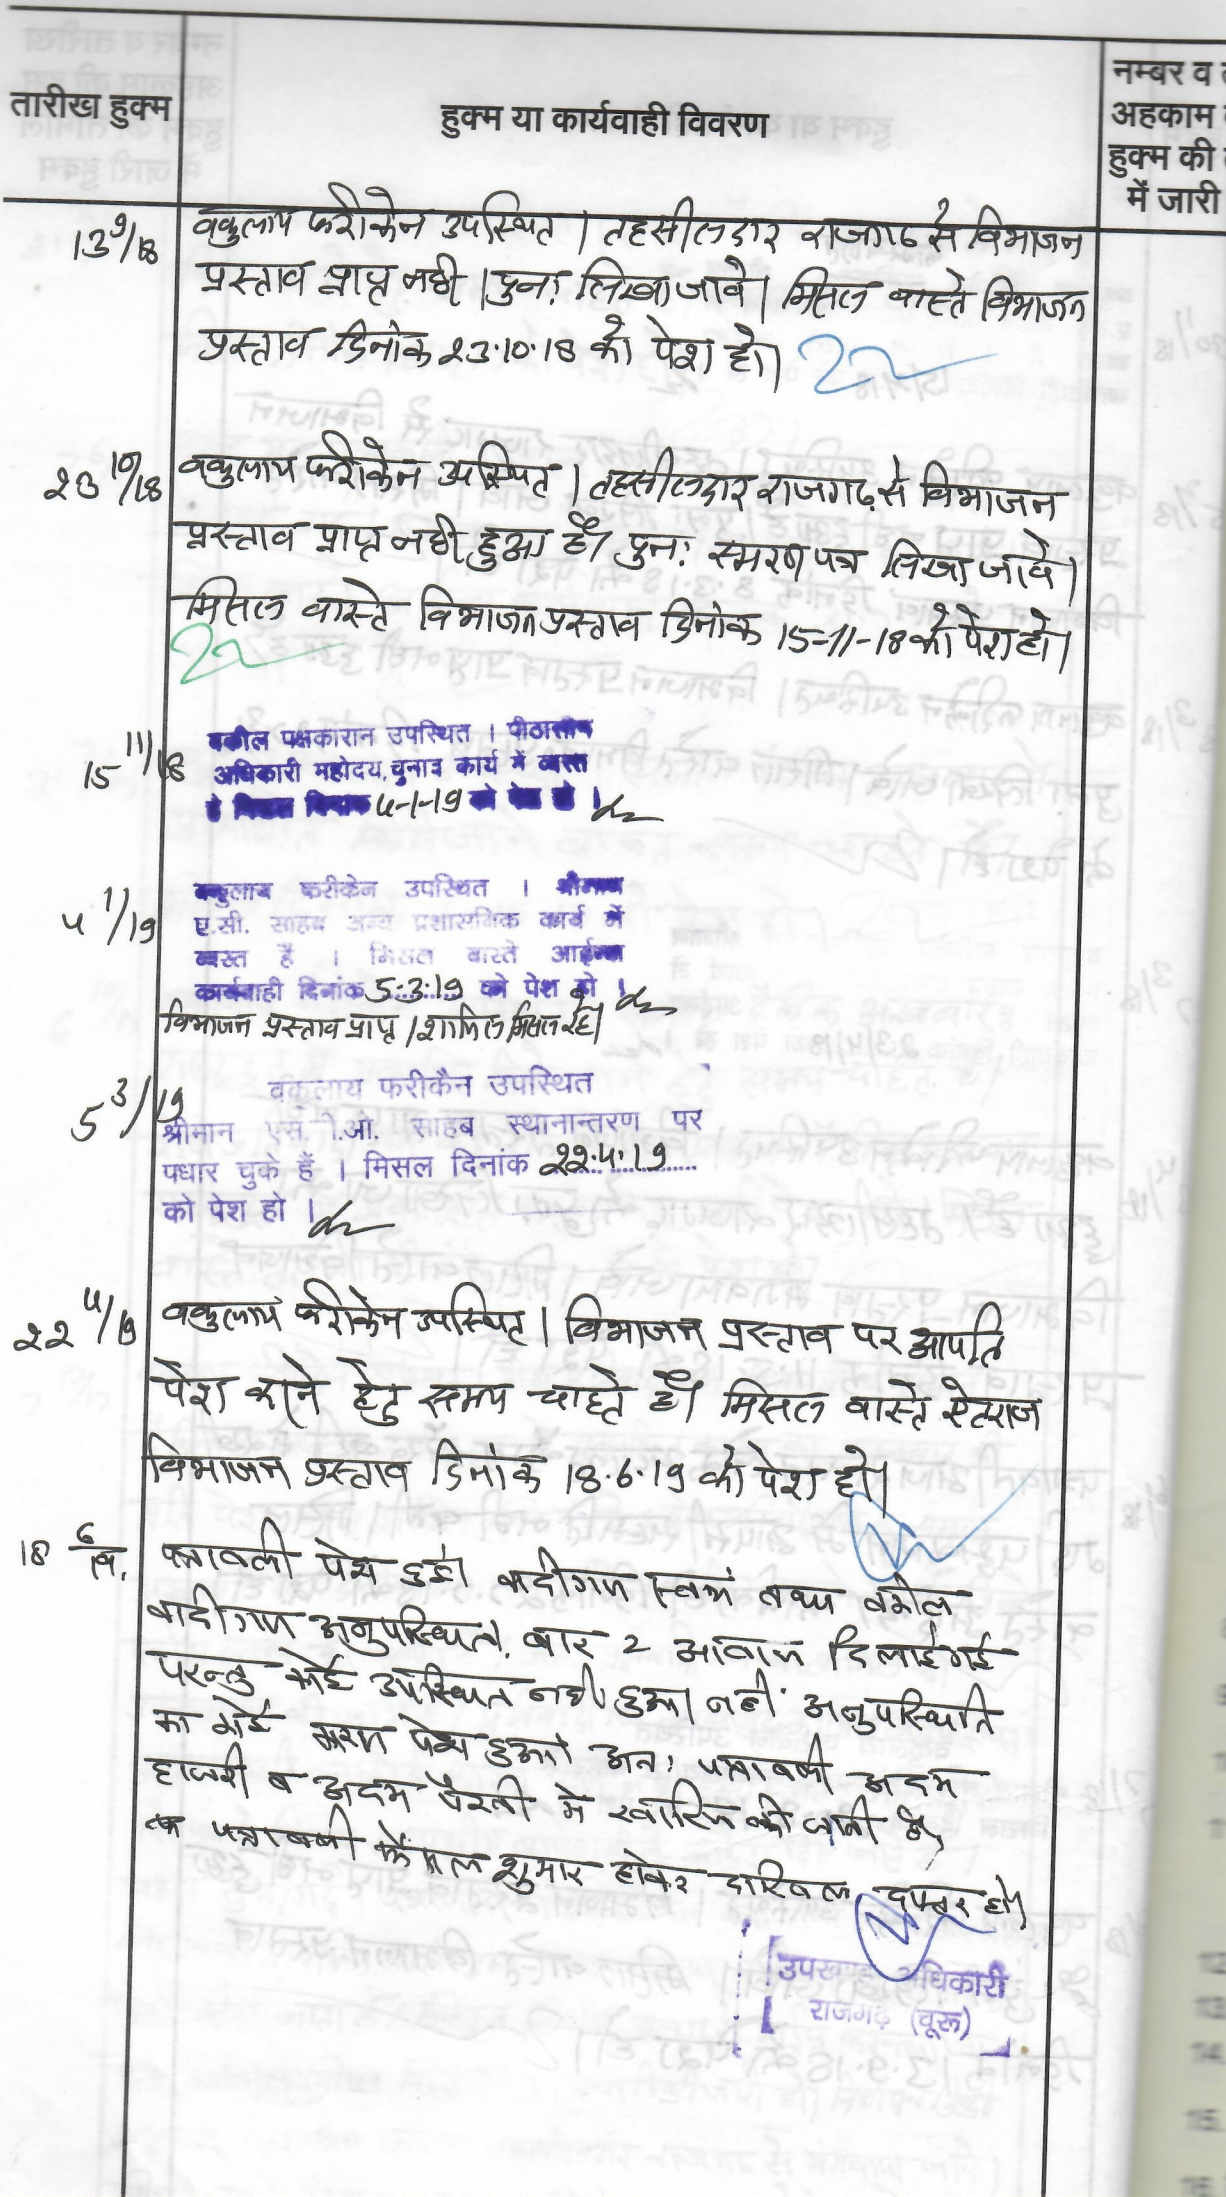 तारीख हुक्म
हुक्म या कार्यवाही विवरण
नम्बर व
अहकाम
हुक्म की
में जारी
13 9/18
वकुलाय फरीकेन उपस्थित । तहसीलदार राजगढ से विभाजन
प्रस्ताव प्राप्त नही । पुनः लिखा जावे । मिसल वास्ते विभाजन
प्रस्ताव दिनांक 23.10.18 को पेश हो।
23 10/18
वकुलाय फरीकेन उपस्थित । तहसीलदार राजगढ़ से विभाजन
प्रस्ताव प्राप्त नही हुआ है। पुनः स्मरण पत्र लिखा जावे।
मिसल वास्ते विभाजन प्रस्ताव दिनांक 15-11-18 को पेश हो।
15 11/18
वकील पक्षकारान उपस्थित । पीठासीन
अधिकारी महोदय, चुनाव कार्य में व्यस्त
है मिसल दिनांक 4-1-19 को पेश हो ।
4 1/19
वकुलाय फरीकेन उपस्थित । श्रीमान
ए.सी. साहब अन्य प्रशासनिक कार्य में
व्यस्त है । मिसल वास्ते आईन्दा
कार्यवाही दिनांक 5.3.19 को पेश हो ।
विभाजन प्रस्ताव प्राप्त । शामिल मिसल रहे।
5 3/19
वकुलाय फरीकैन उपस्थित
श्रीमान एस. .ओ. साहब स्थानान्तरण पर
पधार चुके हैं । मिसल दिनांक 22.4.19
को पेश हो ।
22 4/19
वकुलाय फरीकेन उपस्थित । विभाजन प्रस्ताव पर आपति
पेश करने हेतु समय चाहते है। मिसल वास्ते ऐतराज
विभाजन प्रस्ताव दिनांक 18.6.19 को पेश हो।
18 6/19.
पत्रावली पेश हुई। वादीगण स्वयं तथा वकील
वादीगण अनुपस्थित. बार 2 आवाज दिलाई गई
परन्तु कोई उपस्थित नही हुआ। नही अनुपस्थिति
का कोई कारण पेश हुआ। अतः पत्रावली अदम
हाजरी व अदम पैरवी मे खारिज की जाती है,
पत्रावली फैसल शुमार होकर दाखिल दफ्तर हो।
उपखण्ड अधिकारी
राजगढ़ (चूरू)